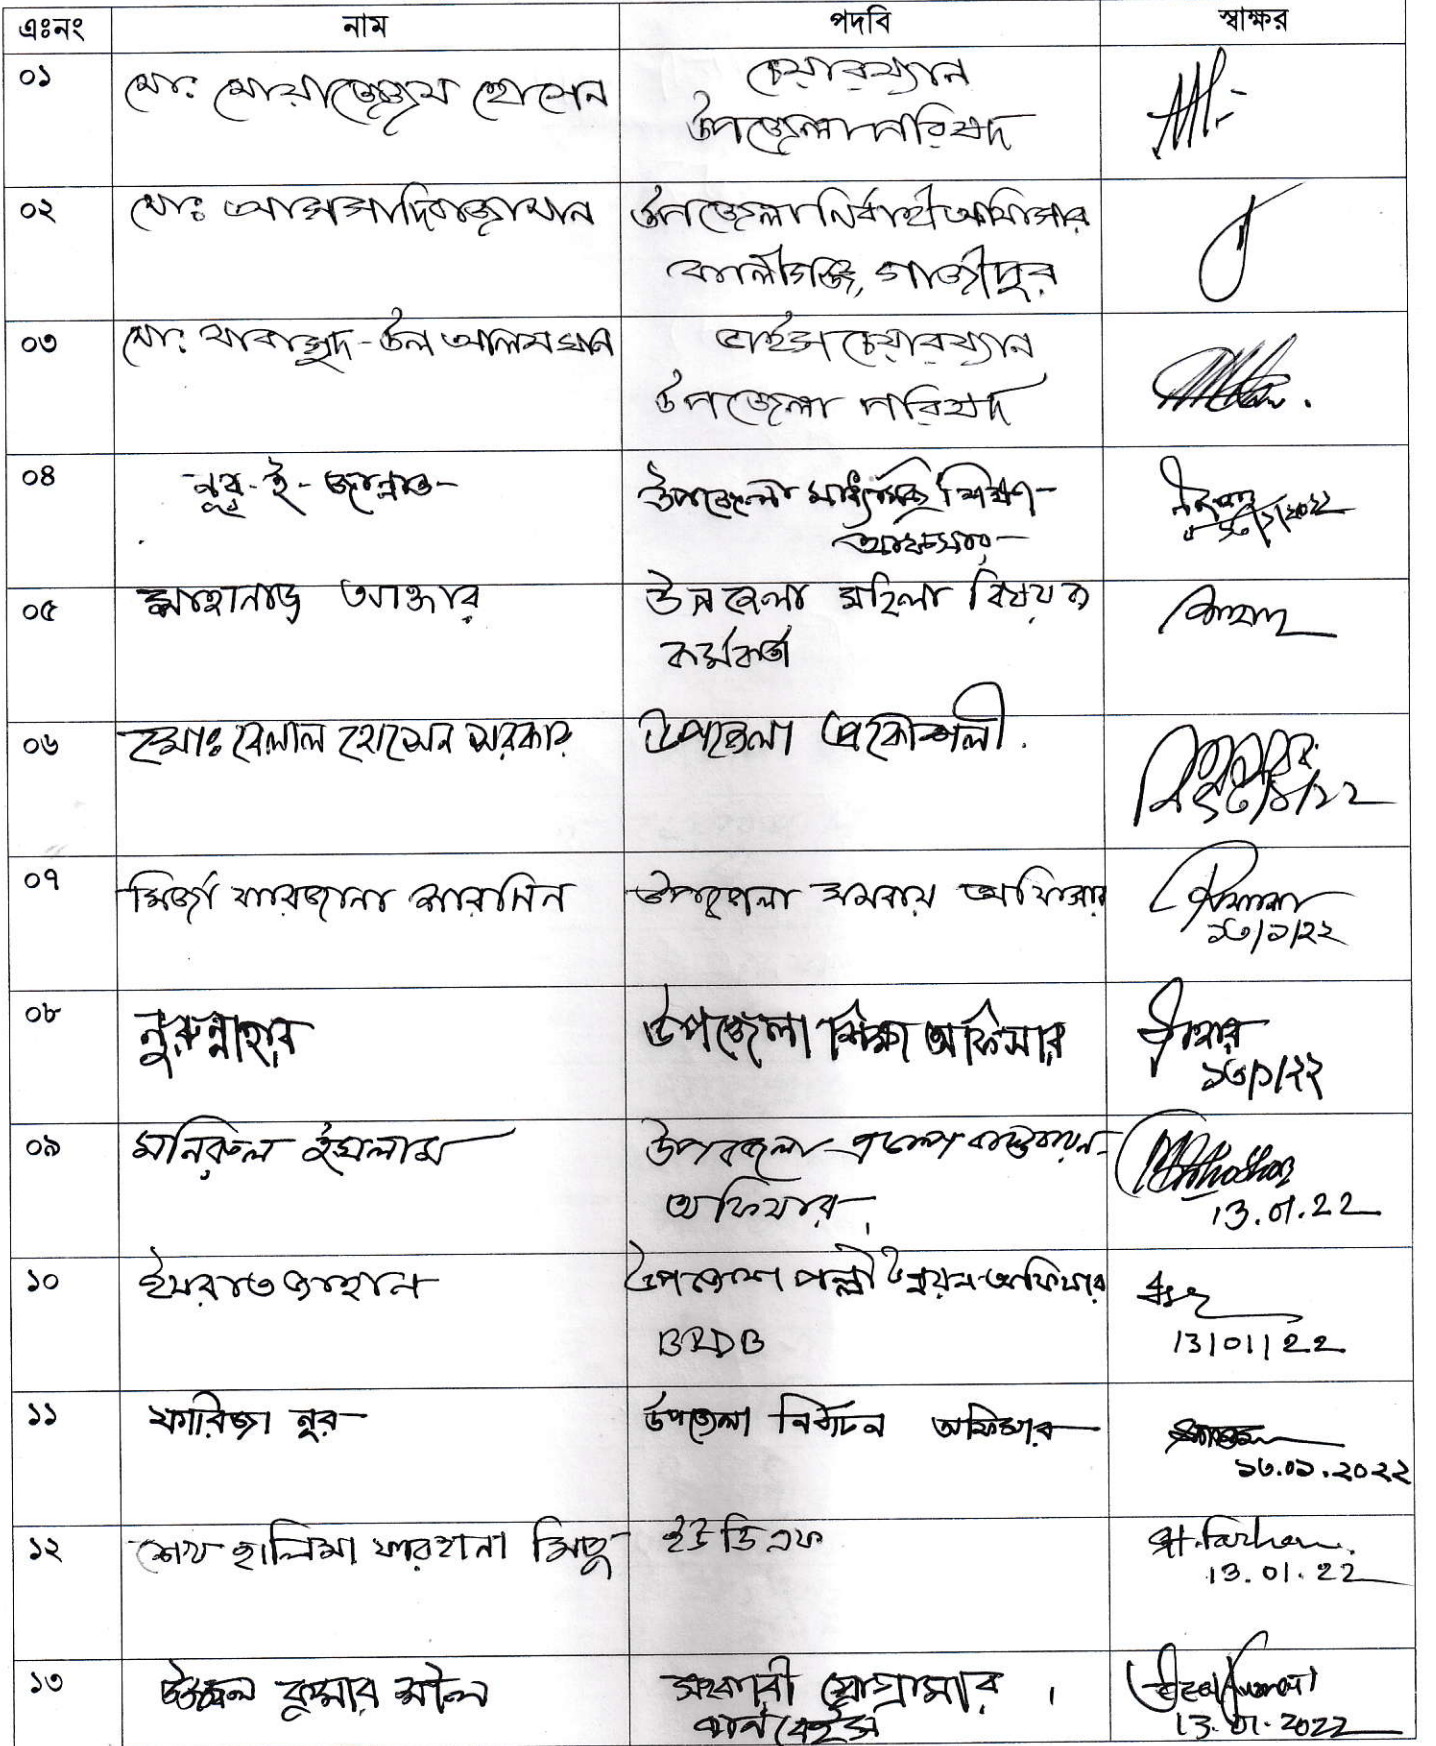 এঃনং নাম পদবি স্বাক্ষর
০১ মো: মোয়াজ্জেম হোসেন চেয়ারম্যান
উপজেলা পরিষদ
০২ মোঃ আসসাদিকজামান উপজেলা নির্বাহী অফিসার
কালীগঞ্জ, গাজীপুর
০৩ মো: মাকসুদ-উল আলম খান ভাইস চেয়ারম্যান
উপজেলা পরিষদ
০৪ নূর-ই-জান্নাত উপজেলা মাধ্যমিক শিক্ষা
অফিসার
০৫ শাহানাজ আক্তার উপজেলা মহিলা বিষয়ক
কর্মকর্তা
০৬ মোঃ বেলাল হোসেন সরকার উপজেলা প্রকৌশলী
০৭ মির্জা ফারজানা শারমিন উপজেলা সমবায় অফিসার
১৩/১/২২
০৮ নুরুন্নাহার উপজেলা শিক্ষা অফিসার
১৩/১/২২
০৯ মনিরুল ইসলাম উপজেলা প্রকল্প বাস্তবায়ন
অফিসার
13.01.22
১০ ইসরাত জাহান উপজেলা পল্লী উন্নয়ন অফিসার
BRDB 13/01/22
১১ ফারিজা নূর উপজেলা নির্বাচন অফিসার
১৩.০১.২০২২
১২ শেখ হালিমা ফারহানা মিতু ইউডিএফ
13.01.22
১৩ উজ্জল কুমার শীল সহকারী প্রোগ্রামার
13.01.2022